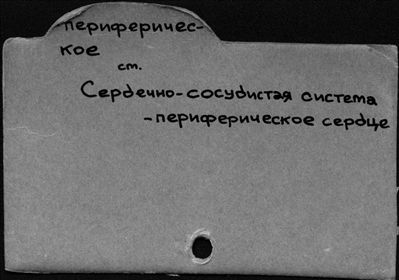 периферичес-
кое
см.
Сердечно-сосудистая система
-периферическое сердце